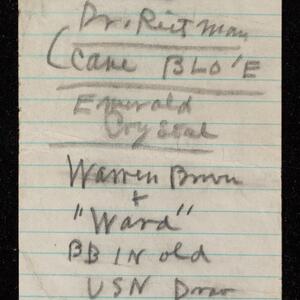 Dr. Rietman
(Cave BLO'E
Emerald
Crystal
Warren Brown
+
"Ward"
BB IN old
USN Draw